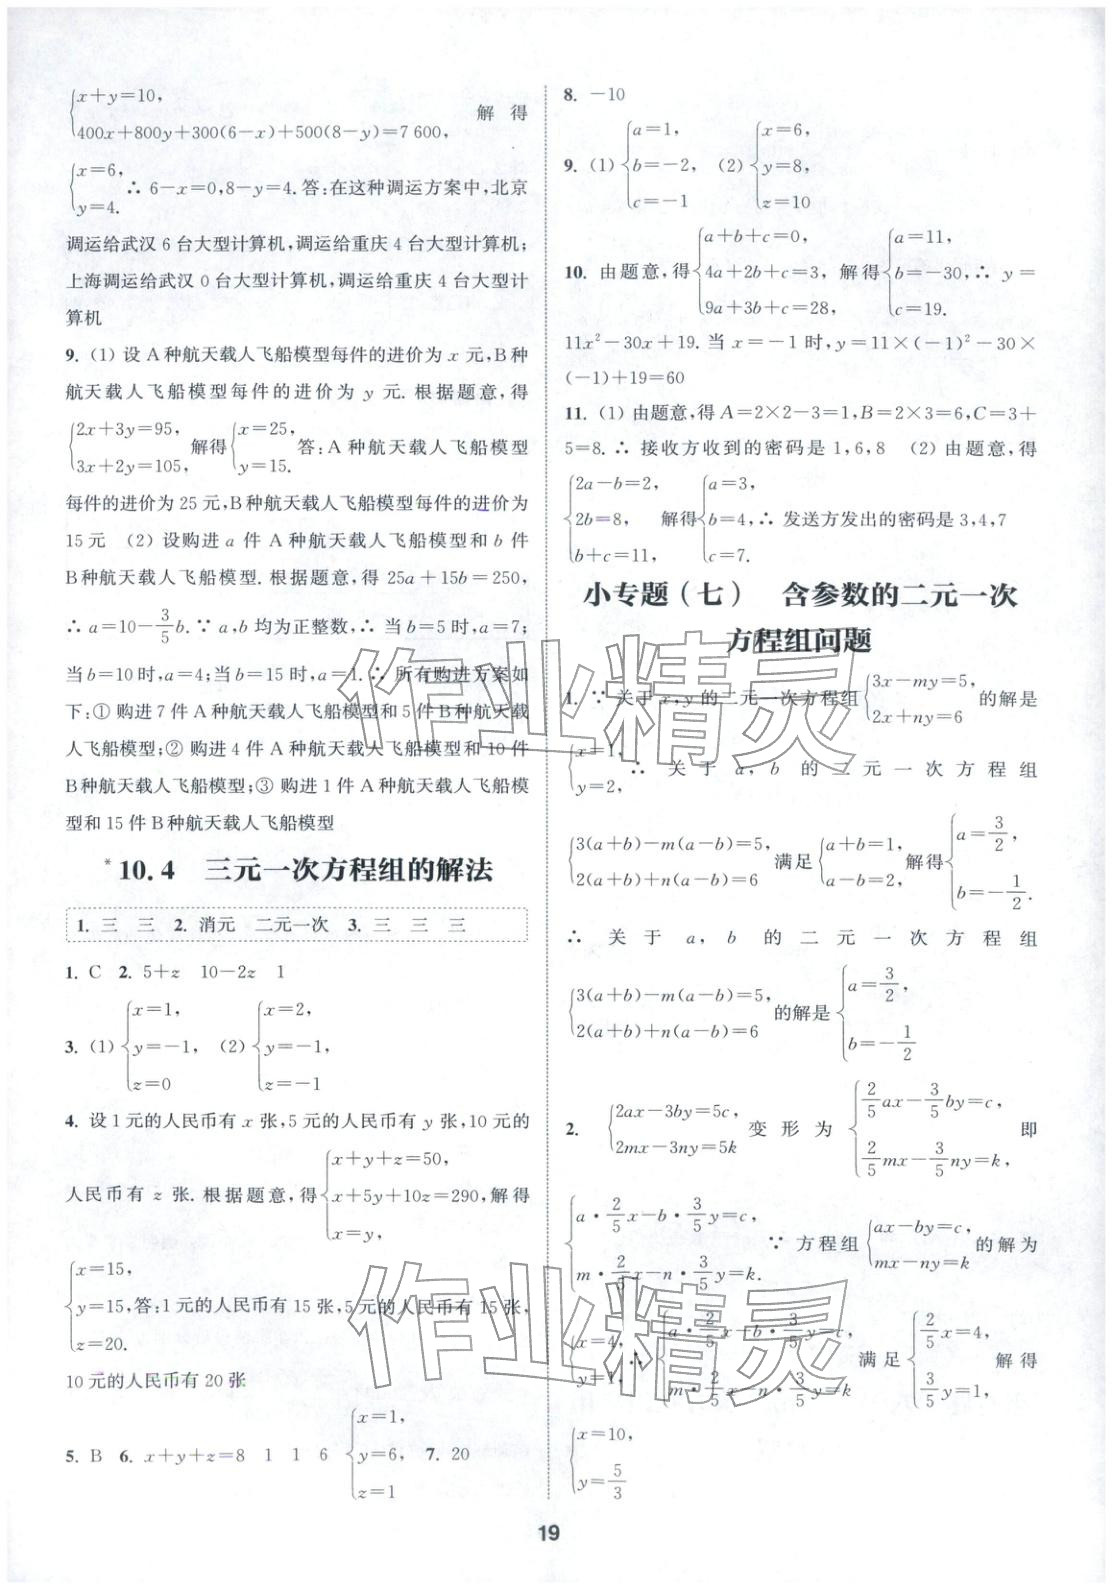 {x+y=10,
400x+800y+300(6-x)+500(8-y)=7 600, 解得
{x=6,
y=4. ∴ 6-x=0,8-y=4. 答:在这种调运方案中,北京
调运给武汉 6 台大型计算机,调运给重庆 4 台大型计算机;
上海调运给武汉 0 台大型计算机,调运给重庆 4 台大型计
算机
9. (1) 设 A 种航天载人飞船模型每件的进价为 x 元,B 种
航天载人飞船模型每件的进价为 y 元. 根据题意,得
{2x+3y=95,
3x+2y=105, 解得 {x=25,
y=15. 答:A 种航天载人飞船模型
每件的进价为 25 元,B 种航天载人飞船模型每件的进价为
15 元 (2) 设购进 a 件 A 种航天载人飞船模型和 b 件
B 种航天载人飞船模型. 根据题意,得 25a+15b=250,
∴ a=10-3/5b. ∵ a,b 均为正整数,∴ 当 b=5 时,a=7;
当 b=10 时,a=4;当 b=15 时,a=1. ∴ 所有购进方案如
下:① 购进 7 件 A 种航天载人飞船模型和 5 件 B 种航天载
人飞船模型;② 购进 4 件 A 种航天载人飞船模型和 10 件
B 种航天载人飞船模型;③ 购进 1 件 A 种航天载人飞船模
型和 15 件 B 种航天载人飞船模型
*10.4 三元一次方程组的解法
1. 三 三 2. 消元 二元一次 3. 三 三 三
1. C 2. 5+z 10-2z 1
3. (1) {x=1,
y=-1,
z=0 (2) {x=2,
y=-1,
z=-1
4. 设 1 元的人民币有 x 张,5 元的人民币有 y 张,10 元的
人民币有 z 张. 根据题意,得 {x+y+z=50,
x+5y+10z=290,
x=y, 解得
{x=15,
y=15,
z=20. 答:1 元的人民币有 15 张,5 元的人民币有 15 张,
10 元的人民币有 20 张
5. B 6. x+y+z=8 1 1 6 {x=1,
y=6,
z=1 7. 20
8. -10
9. (1) {a=1,
b=-2,
c=-1 (2) {x=6,
y=8,
z=10
10. 由题意,得 {a+b+c=0,
4a+2b+c=3,
9a+3b+c=28, 解得 {a=11,
b=-30,
c=19. ∴ y=
11x²-30x+19. 当 x=-1 时,y=11×(-1)²-30×
(-1)+19=60
11. (1) 由题意,得 A=2×2-3=1,B=2×3=6,C=3+
5=8. ∴ 接收方收到的密码是 1,6,8 (2) 由题意,得
{2a-b=2,
2b=8,
b+c=11, 解得 {a=3,
b=4,
c=7. ∴ 发送方发出的密码是 3,4,7
小专题(七) 含参数的二元一次
方程组问题
1. ∵ 关于 x,y 的二元一次方程组 {3x-my=5,
2x+ny=6 的解是
{x=1,
y=2, ∴ 关于 a,b 的二元一次方程组
{3(a+b)-m(a-b)=5,
2(a+b)+n(a-b)=6 满足 {a+b=1,
a-b=2, 解得 {a=3/2,
b=-1/2.
∴ 关于 a,b 的二元一次方程组
{3(a+b)-m(a-b)=5,
2(a+b)+n(a-b)=6 的解是 {a=3/2,
b=-1/2
2. {2ax-3by=5c,
2mx-3ny=5k 变形为 {2/5ax-3/5by=c,
2/5mx-3/5ny=k, 即
{a·2/5x-b·3/5y=c,
m·2/5x-n·3/5y=k. ∵ 方程组 {ax-by=c,
mx-ny=k 的解为
{x=4,
y=1, ∴ {a·2/5x-b·3/5y=c,
m·2/5x-n·3/5y=k 满足 {2/5x=4,
3/5y=1, 解得
{x=10,
y=5/3
19
作业精灵
作业精灵